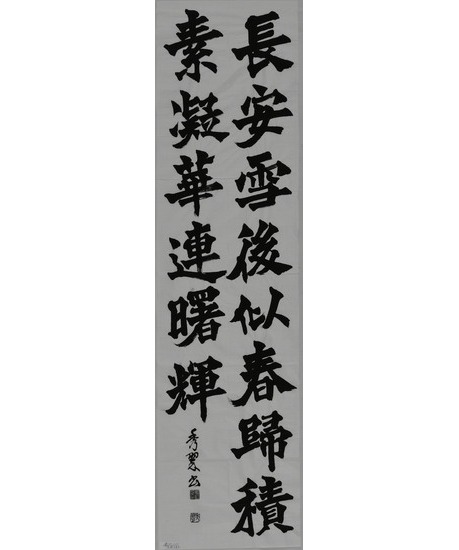 長安雪後似春歸積
素凝華連曙輝
秀翠書